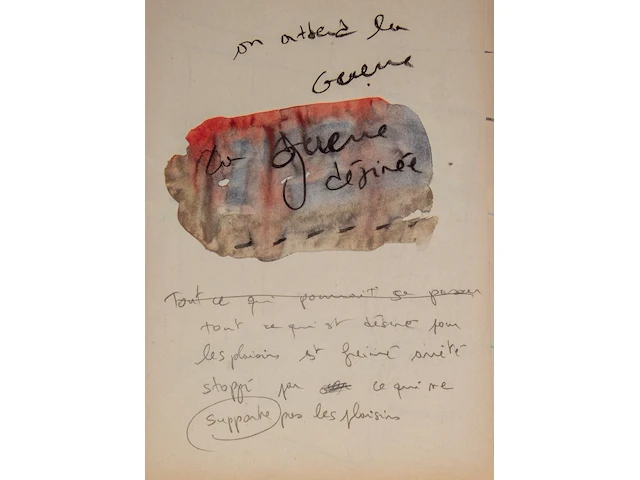 on attend la
Guerre
La guerre
désirée
Tout ce qui pourrait se passer
tout ce qui est désiré pour
les plaisirs est freiné arrêté
stoppé par ce qui ne
supporte pas les plaisirs